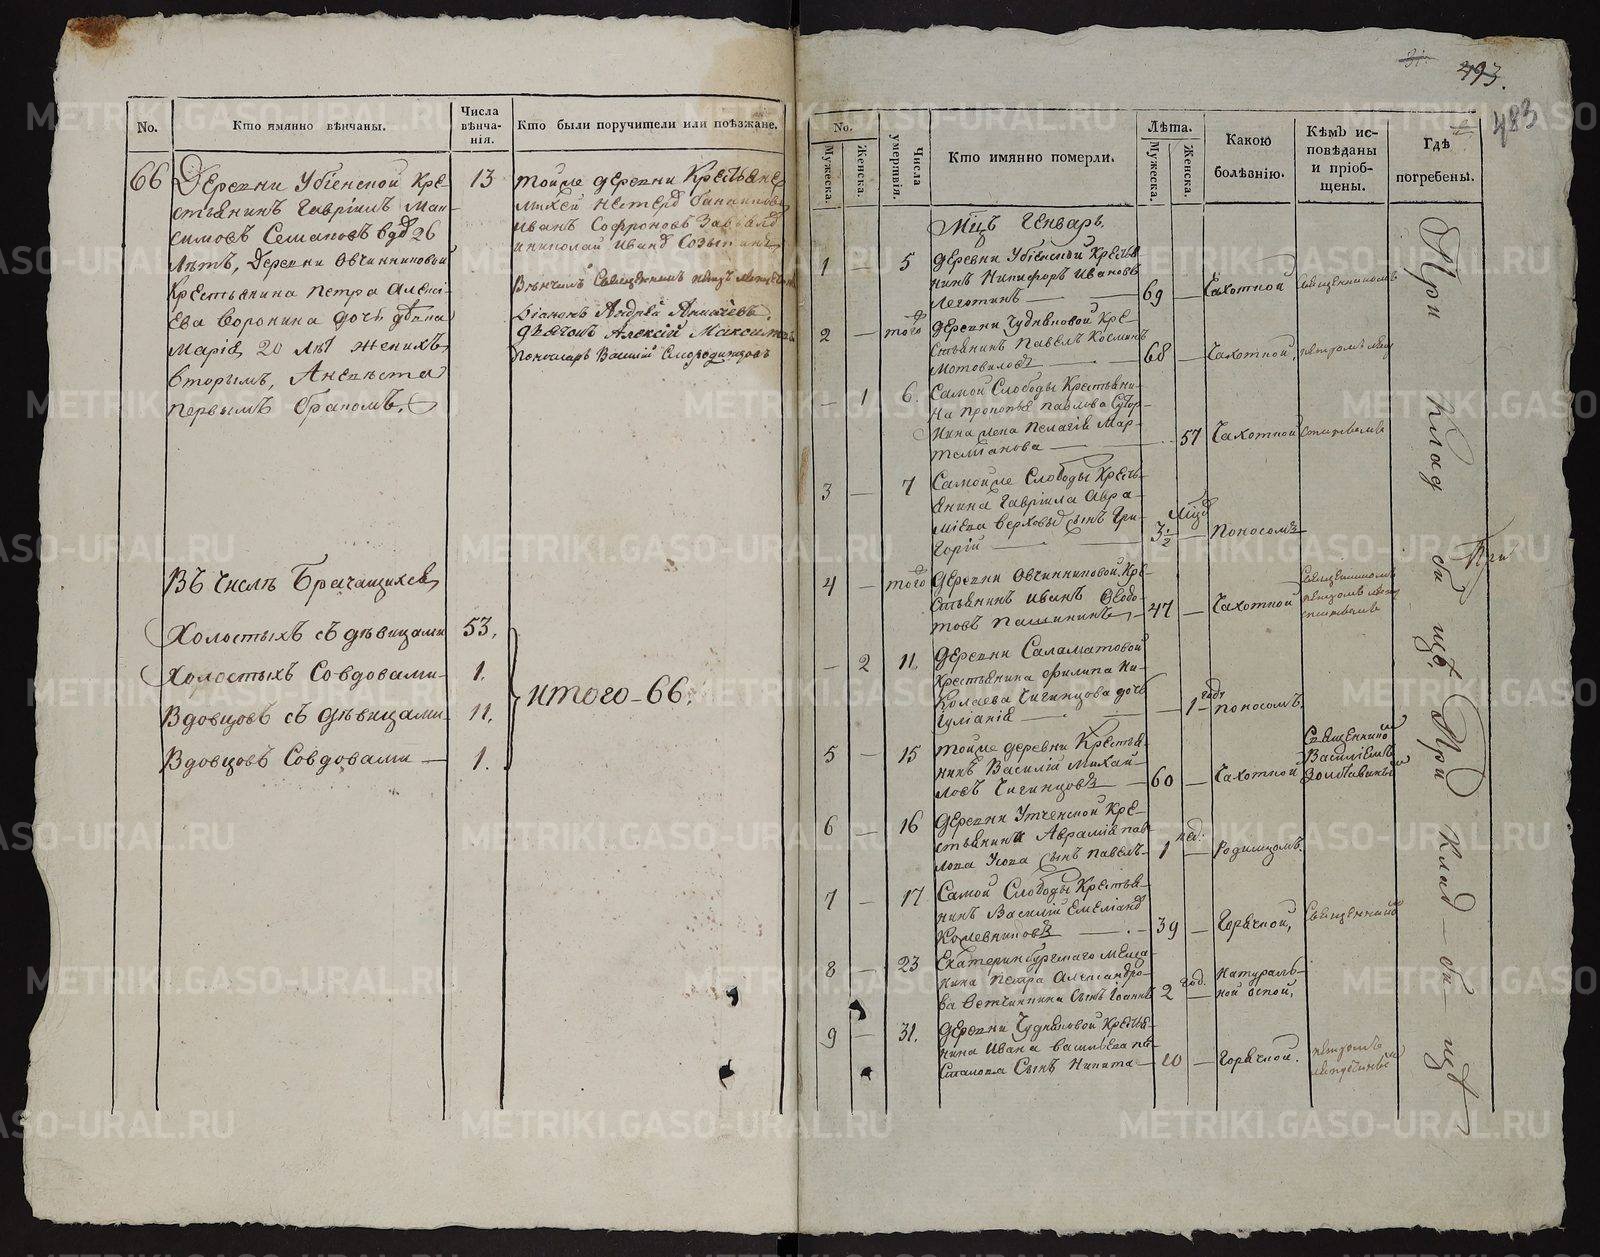 No.
Кто имянно вѣнчаны.
Числа
вѣнча-
нія.
Кто были поручители или поѣзжане.
66
Деревни Убіенской Кре-
стьянинъ Гавріилъ Мак-
симовъ Семаковъ вдов 26
лѣтъ, деревни Овчинниковой
крестьянина Петра Алексі-
ева Воронина дочь дѣвка
Марія 20 лѣт женихъ
вторымъ, а невѣста
первымъ бракомъ.
13
тойже деревни Крестьяне
Иванъ Софроновъ
Николай Иванов
Вѣнчалъ Священникъ
діаконъ Андрей
дьячокъ Алексій Максимовъ
пономарь Василій Смородинцовъ
Въ числѣ Брачащихся
Холостыхъ съ дѣвицами
53.
Холостыхъ со вдовами
1.
Вдовцовъ съ дѣвицами
11.
Вдовцовъ со вдовами
1.
итого - 66.
493.
483
No.
Мужеска.
Женска.
Числа
умертвія.
Кто имянно померли.
Лѣта.
Мужеска.
Женска.
Какою
болѣзнію.
Кѣмъ ис-
повѣданы
и пріоб-
щены.
Гдѣ
погребены.
Мцъ Генварь.
1 — 5 деревни Убіенской Крестья-
нинъ Никифоръ Ивановъ
Леготинъ 69 — Чахоткой священникомъ
2 — того деревни Чудиновой Кре-
стьянинъ Павелъ Косминъ
Мотовиловъ 68 — Чахоткой
— 1 6. Самой Слободы Крестьяни-
на Прокопья Павлова
жена Пелагія Мар-
темьянова — 57 Чахоткой
3 — 7 Самойже Слободы Кресть-
янина Гавріила Авра-
міева сынъ Гри-
горій 3½ — Поносомъ
4 — того деревни Овчинниковой Кре-
стьянинъ Иванъ Ѳедо-
товъ Пашининъ 47 — Чахоткой
священникомъ
— 2 11. деревни Саламатовой
Крестьянина Филипа Ни-
колаева Чигинцова дочь
Іуліанія — 1 годъ поносомъ,
5 — 15 тойже деревни Крестья-
нинъ Василій Михай-
ловъ Чигинцовъ 60 — Чахоткой
Священникомъ
Василіемъ
6 — 16 деревни Утченской Кре-
стьянина Аврамія Пав-
лова Усова сынъ Павелъ 1 нед. — Родимцомъ.
7 — 17 Самой Слободы Крестья-
нинъ Василій Емеліановъ
Кожевниковъ 39 — Горячкой, Священникомъ
8 — 23 Екатеринбургскаго Меща-
нина Петра Александро-
ва Ветчинкина сынъ Іоаннъ 2 год. — Натураль-
ной оспой,
9 — 31. деревни Чудиновой Крестья-
нина Ивана Васильева
сынъ Никита 20 — Горячкой.
При клад-би-щѣ
При клад-би-щѣ
При
METRIKI.GASO-URAL.RU